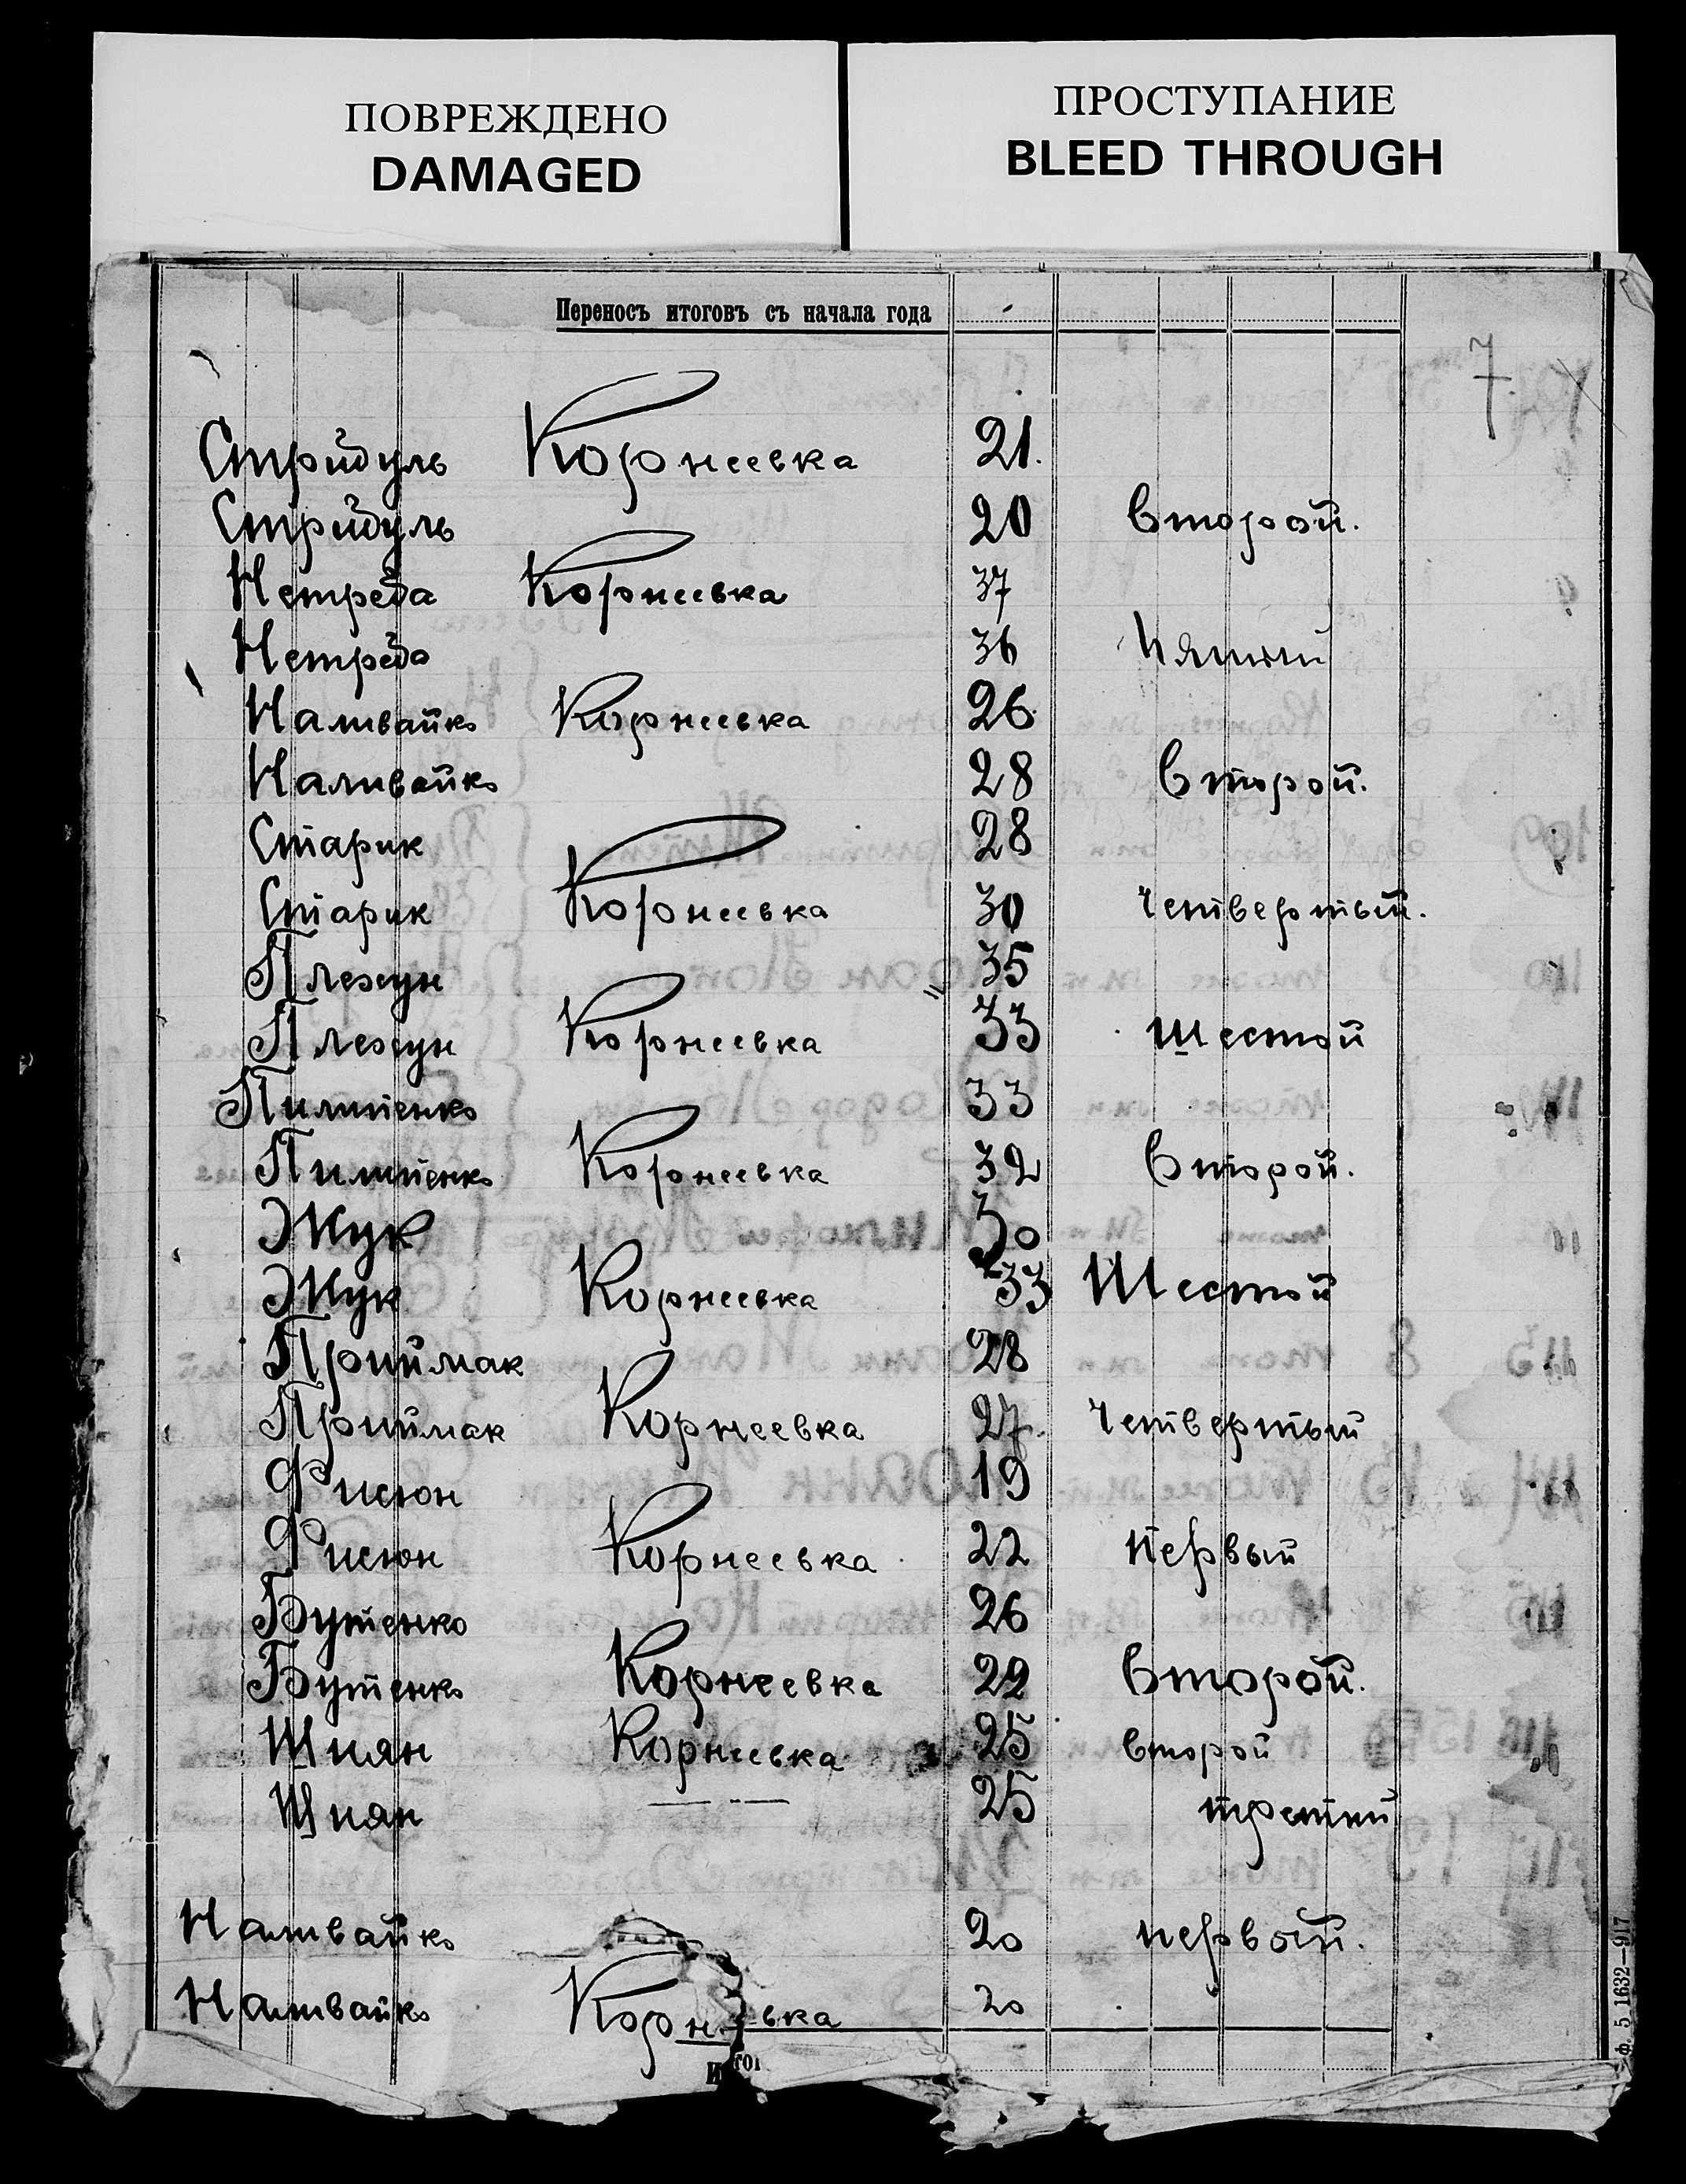 ПОВРЕЖДЕНО
DAMAGED
ПРОСТУПАНИЕ
BLEED THROUGH
Переносъ итоговъ съ начала года
7.
Стридуль Корнеевка 21.
Стридуль 20 второй.
Нетреба Корнеевка 37
Нетреба 36 пятый
Наливайко Корнеевка 26.
Наливайко 28 второй.
Старик 28
Старик Корнеевка 30 четвертый.
Плехун 35
Плехун Корнеевка 33 шестой
Пилипенко 33
Пилипенко Корнеевка 32 второй.
Жук 30
Жук Корнеевка 33 Шестой
Приймак 28
Приймак Корнеевка 27. четвертый
Фисюн 19
Фисюн Корнеевка 22 первый
Бутенко 26
Бутенко Корнеевка 22 второй.
Шиян Корнеевка 25 второй
Шиян — „ — 25 третий
Наливайко 20 первый.
Наливайко Корн вка 20
Ф. 5 1632—917